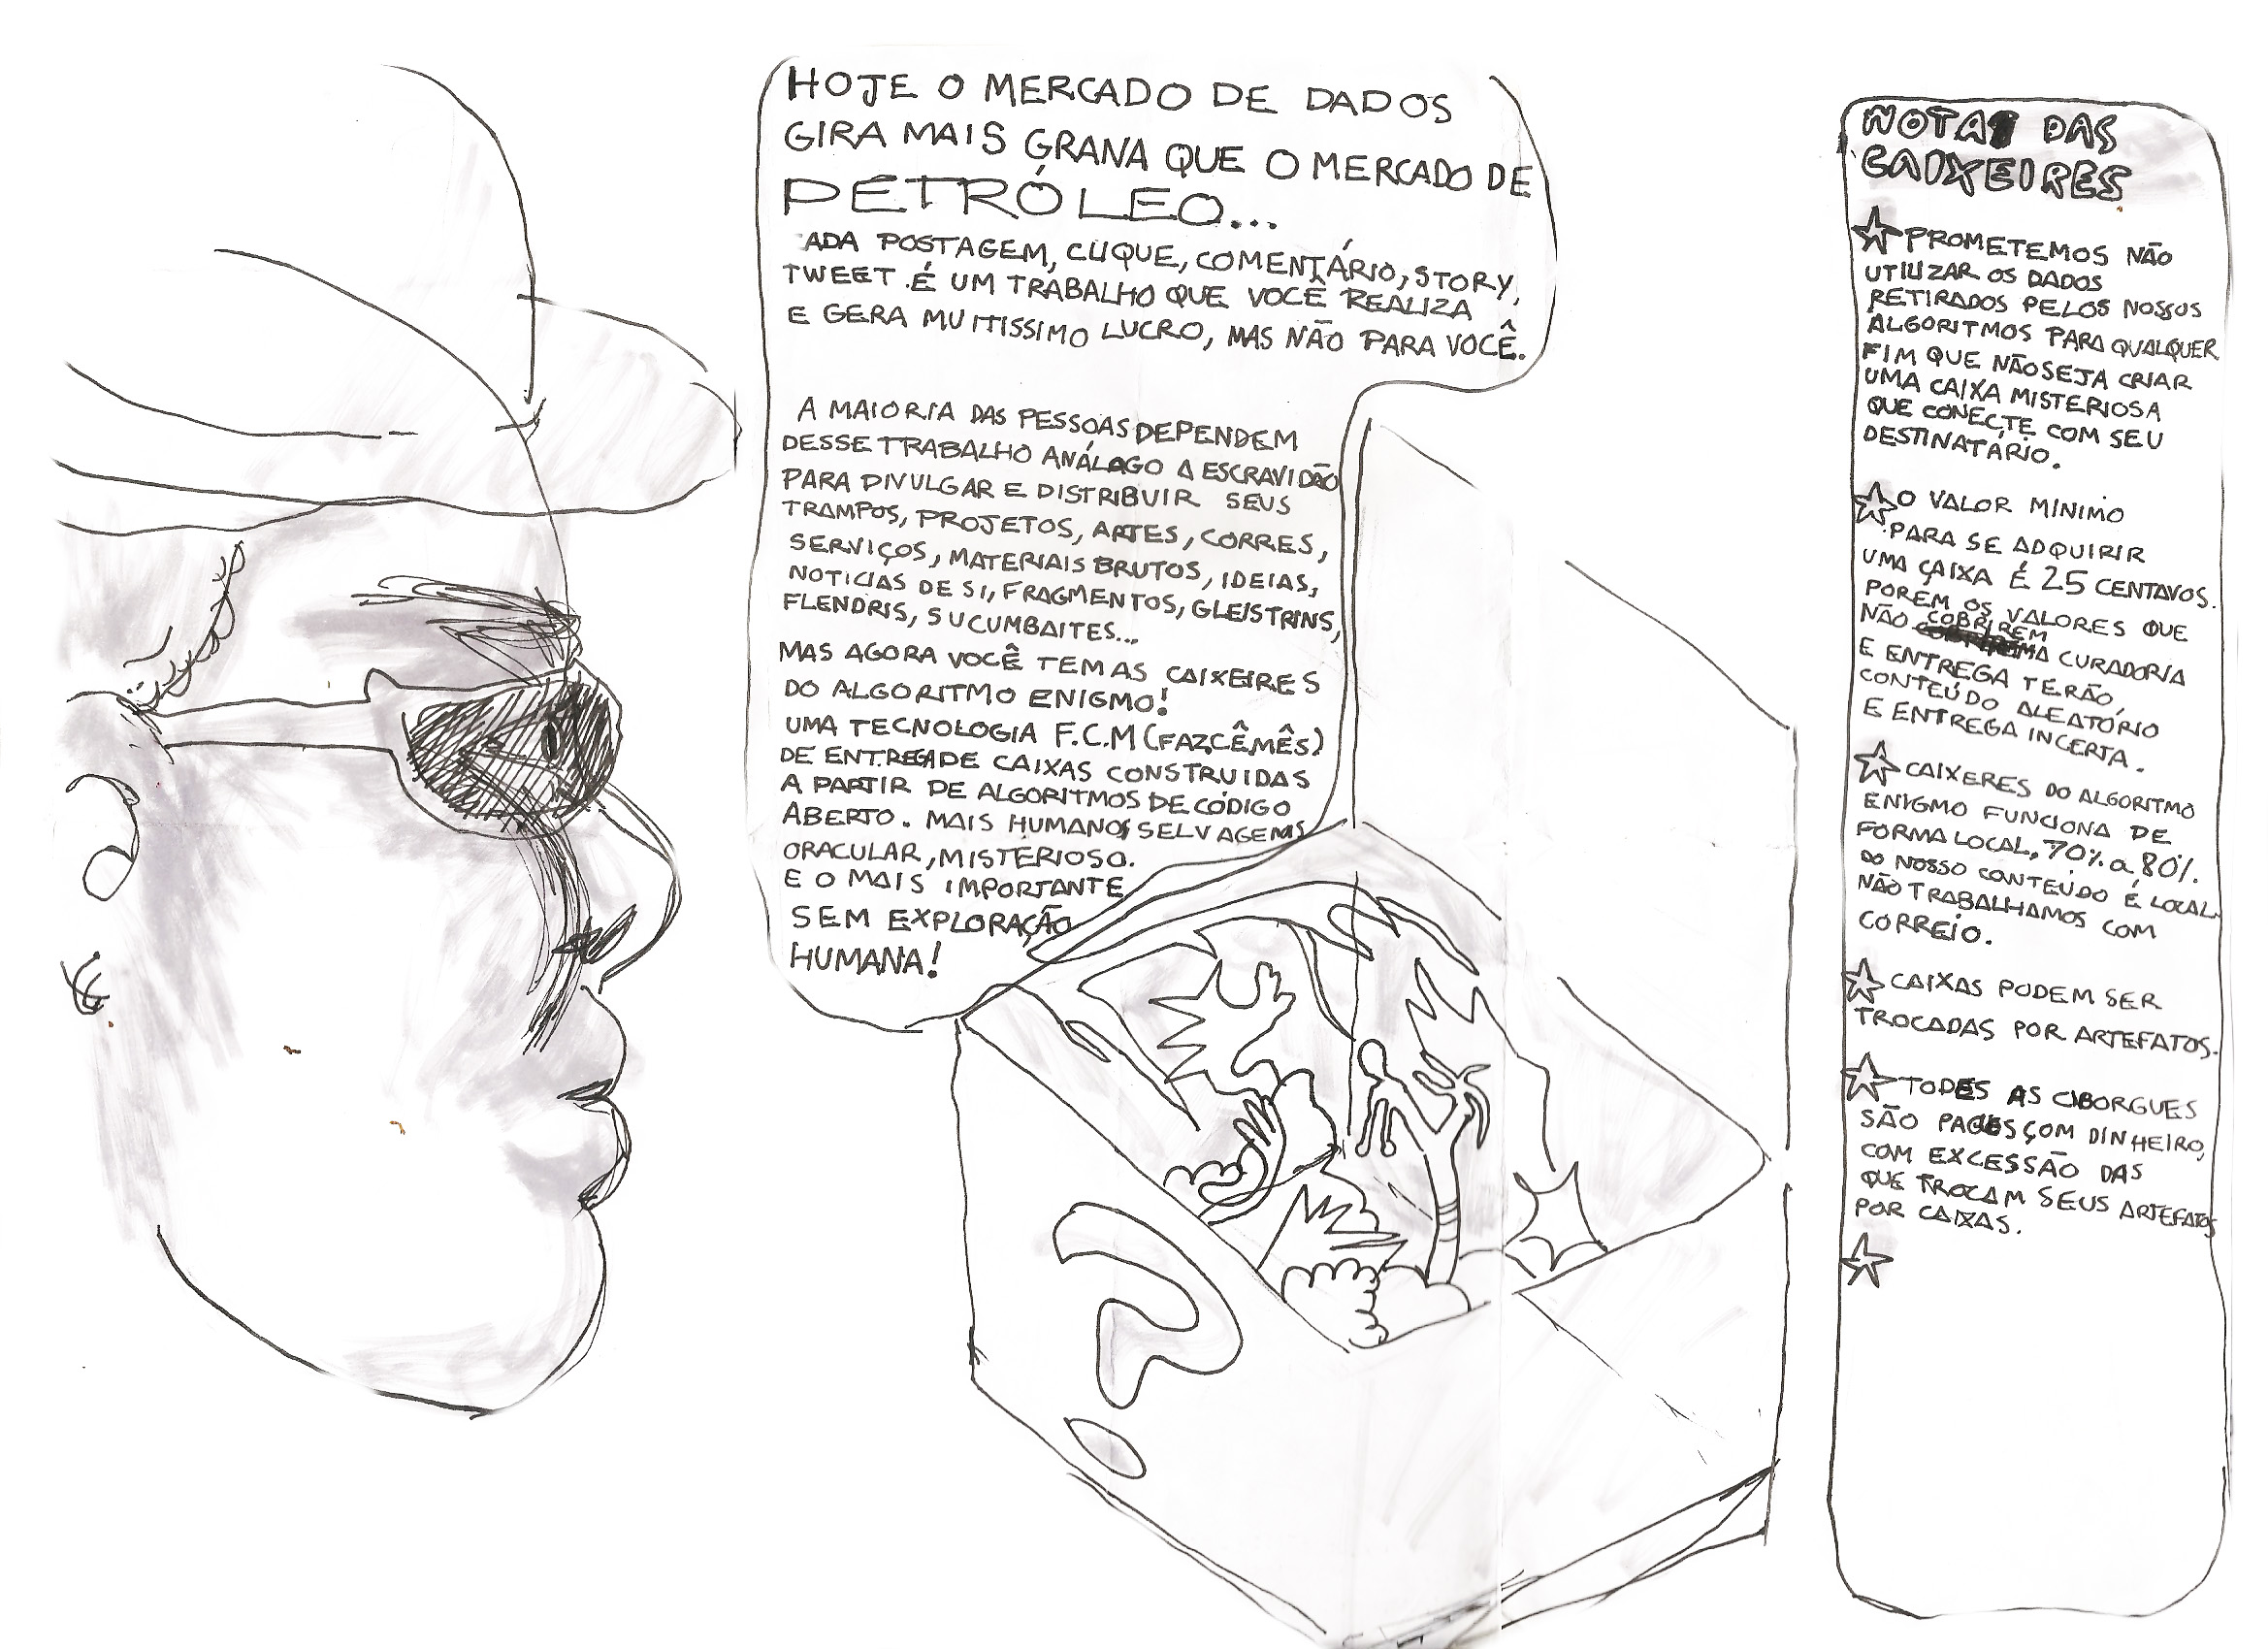 HOJE O MERCADO DE DADOS
GIRA MAIS GRANA QUE O MERCADO DE
PETRÓLEO...
ADA POSTAGEM, CLIQUE, COMENTÁRIO, STORY,
TWEET É UM TRABALHO QUE VOCÊ REALIZA
E GERA MUITISSIMO LUCRO, MAS NÃO PARA VOCÊ.
A MAIORIA DAS PESSOAS DEPENDEM
DESSE TRABALHO ANÁLAGO A ESCRAVIDÃO
PARA DIVULGAR E DISTRIBUIR SEUS
TRAMPOS, PROJETOS, ARTES, CORRES,
SERVIÇOS, MATERIAIS BRUTOS, IDEIAS,
NOTICIAS DE SI, FRAGMENTOS, GLEISTRINS,
FLENDRIS, SUCUMBAITES...
MAS AGORA VOCÊ TEM AS CAIXEIRES
DO ALGORITMO ENIGMO!
UMA TECNOLOGIA F.C.M (FAZCÊMÊS)
DE ENTREGA DE CAIXAS CONSTRUIDAS
A PARTIR DE ALGORITMOS DE CÓDIGO
ABERTO. MAIS HUMANO, SELVAGEMS
ORACULAR, MISTERIOSO.
E O MAIS IMPORTANTE
SEM EXPLORAÇÃO
HUMANA!
NOTAS DAS
CAIXEIRES
PROMETEMOS NÃO
UTILIZAR OS DADOS
RETIRADOS PELOS NOSSOS
ALGORITMOS PARA QUALQUER
FIM QUE NÃO SEJA CRIAR
UMA CAIXA MISTERIOSA
QUE CONECTE COM SEU
DESTINATÁRIO.
O VALOR MINIMO
PARA SE ADQUIRIR
UMA CAIXA É 25 CENTAVOS.
POREM OS VALORES QUE
NÃO COBRIREM A CURADORIA
E ENTREGA TERÃO
CONTEÚDO ALEATÓRIO
E ENTREGA INCERTA.
CAIXERES DO ALGORITMO
ENIGMO FUNCIONA DE
FORMA LOCAL, 70% a 80%.
DO NOSSO CONTEÚDO É LOCAL
NÃO TRABALHAMOS COM
CORREIO.
CAIXAS PODEM SER
TROCADAS POR ARTEFATOS.
TODES AS CIBORGUES
SÃO PAGES COM DINHEIRO,
COM EXCESSÃO DAS
QUE TROCAM SEUS ARTEFATOS
POR CAIXAS.